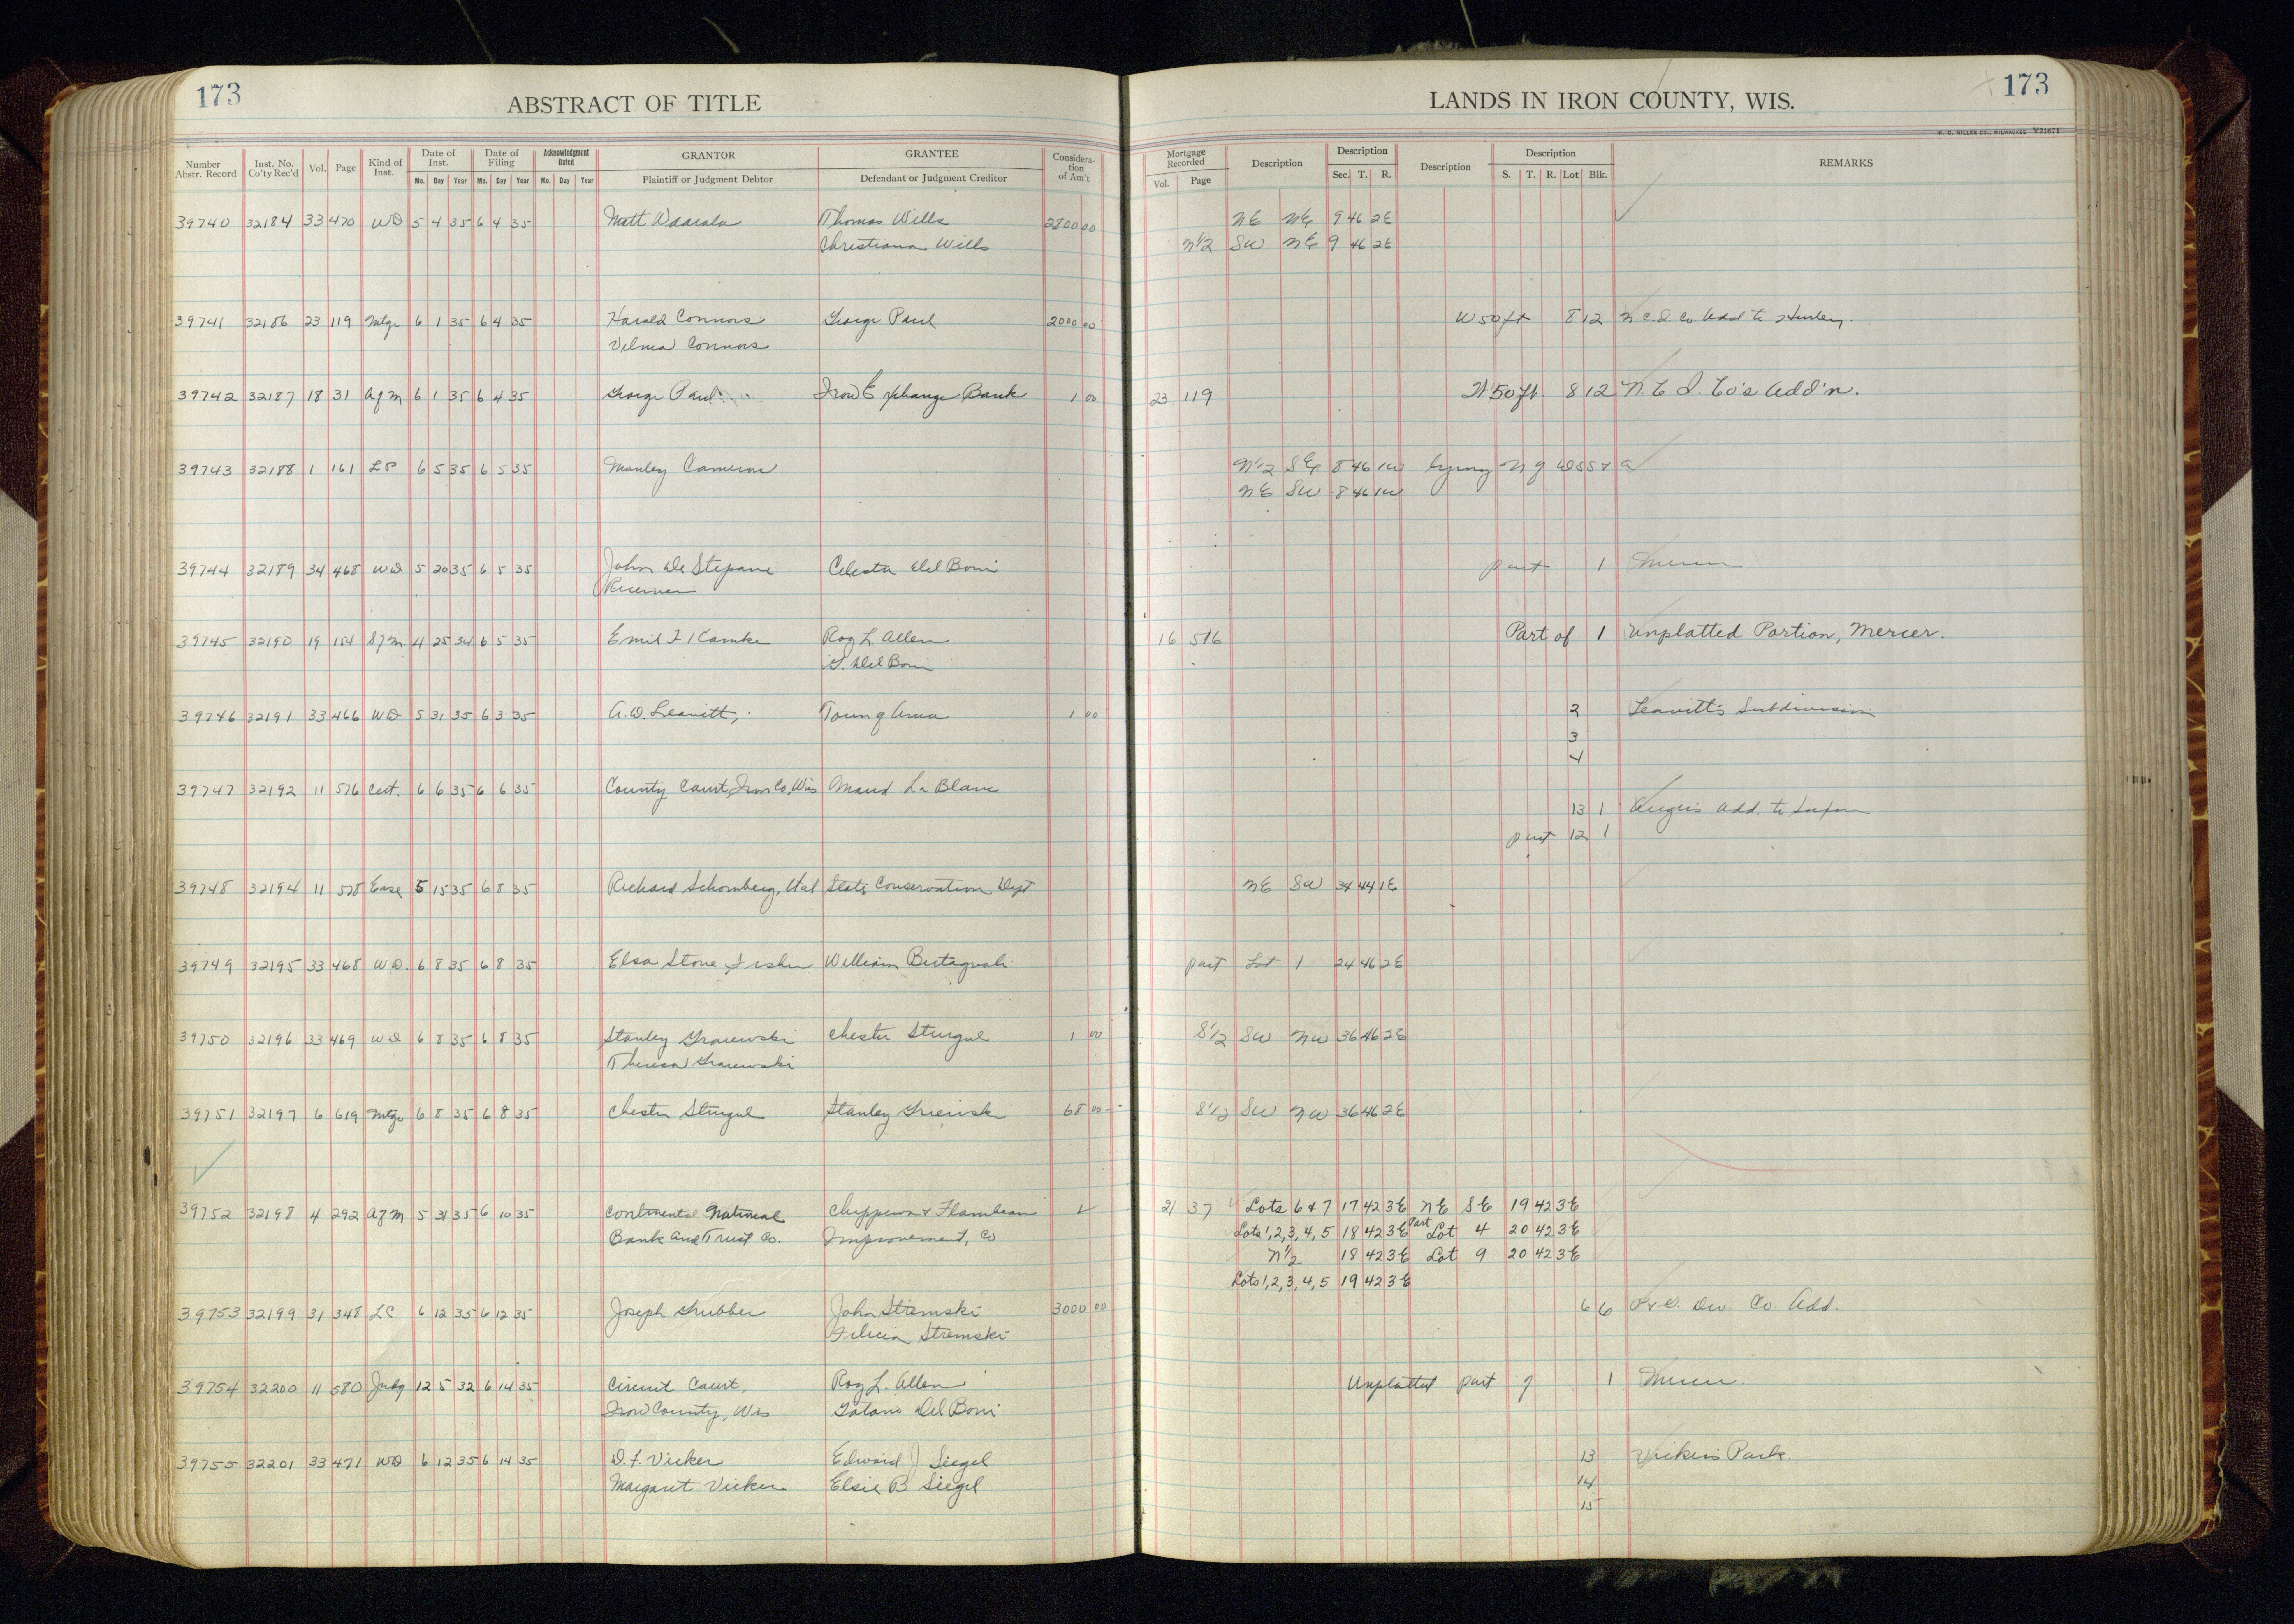 173
ABSTRACT OF TITLE
LANDS IN IRON COUNTY, WIS.
173
H. C. MILLER CO., MILWAUKEE Y21671
Number Abstr. Record | Inst. No. Co'ty Rec'd | Vol. | Page | Kind of Inst. | Date of Inst. | Date of Filing | Acknowledgment Dated | GRANTOR | GRANTEE | Consideration of Am't | Mortgage Recorded | Description | Description | Description | Description | REMARKS
Mo. Day Year Mo. Day Year Mo. Day Year | Plaintiff or Judgment Debtor | Defendant or Judgment Creditor | Vol. Page | Sec. T. R. | S. T. R. Lot Blk.
39740 32184 33 470 WD 5 4 35 6 4 35 Matt Thomas Wills 2800 00 NE NE 9 46 2E
Christiana Wills N1/2 SW NE 9 46 2E
39741 32186 23 119 Mtge 6 1 35 6 4 35 Harold Connors George Paul 2000 00 W 50 ft 8 12 N.C.I. Co. Add to Hurley.
Velma Connors
39742 32187 18 31 A of M 6 1 35 6 4 35 George Paul Iron Exchange Bank 1 00 23 119 W 50 ft. 8 12 N. C. I. Co's Add'n.
39743 32188 1 161 LP 6 5 35 6 5 35 Manley Cameron N1/2 SE 8 46 1W lying N of
NE SW 8 46 1W
39744 32189 34 468 WD 5 20 35 6 5 35 John De Stepani Celesta Del Boni part 1 Mercer
Receiver
39745 32190 19 154 S of M 4 25 34 6 5 35 Emil F Kamke Roy L. Allen 16 516 Part of 1 Unplatted Portion, Mercer.
G. Del Boni
39746 32191 33 466 WD 5 31 35 6 3 35 A. D. Leavitt, 1 00 2 Leavitt's Subdivision
3
4
39747 32192 11 576 Cert. 6 6 35 6 6 35 County Court, Iron Co, Wis Maud La Blanc
13 1 Add. to Saxon
part 12 1
39748 32194 11 578 Ease 5 15 35 6 8 35 Richard Schomberg, Etal State Conservation Dept NE SW 34 44 1E
39749 32195 33 468 W.D. 6 8 35 6 8 35 Elsa Stone Fisher William part Lot 1 24 46 2E
39750 32196 33 469 WD 6 8 35 6 8 35 Stanley Chester Sturgul 1 00 S1/2 SW NW 36 46 2E
Theresa
39751 32197 6 619 Mtge 6 8 35 6 8 35 Chester Sturgul Stanley 68 00 S1/2 SW NW 36 46 2E
39752 32198 4 292 A of M 5 31 35 6 10 35 Continental National Chippewa & Flambeau 21 37 Lots 6 & 7 17 42 3E NE SE 19 42 3E
Bank and Trust Co. Improvement, Co Lots 1, 2, 3, 4, 5 18 42 3E Part Lot 4 20 42 3E
N1/2 18 42 3E Lot 9 20 42 3E
Lots 1, 2, 3, 4, 5 19 42 3E
39753 32199 31 348 LC 6 12 35 6 12 35 Joseph Grubber John Stremski 3000 00 6 6 Co. Add.
Felicia Stremski
39754 32200 11 580 Judg 12 5 32 6 14 35 Circuit Court, Roy L. Allen Unplatted part of 1 Mercer.
Iron County, Wis Del Boni
39755 32201 33 471 WD 6 12 35 6 14 35 D. F. Vicker Edward J Siegel 13 Vickers Park.
Margaret Vicker Elsie B Siegel 14
15